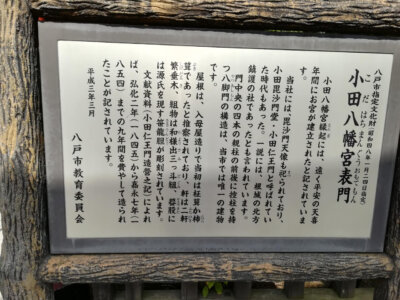 八戸市指定文化財(昭和四八年一月二四日指定)
小田八幡宮表門
こだはちまんぐうおもてもん
小田八幡宮縁起には、遠く平安の天喜
年間にお宮が建立されたと記されていま
す。
当社には、毘沙門天像も祀られており、
小田毘沙門堂、小田仁王門と呼ばれてい
た時代もあった。一説には、根城の北方
鎮護の社であったとも言われています。
門中央の四本の親柱の前後に控柱を持
つ八脚門の構造は、当市では唯一の建物
です。
屋根は、入母屋造りで当初は杮葺か柿
葺であったと推察されており、軒は二軒
繁垂木、組物は和様出三ツ斗組、蟇股に
は源氏を現す笹龍胆が彫刻されています。
文献資料(小田仁王門造営之記)によれ
ば、弘化二年(一八四五)から嘉永七年(一
八五四)までの九年間を費やして造られ
たことが記されています。
平成三年三月
八戸市教育委員会